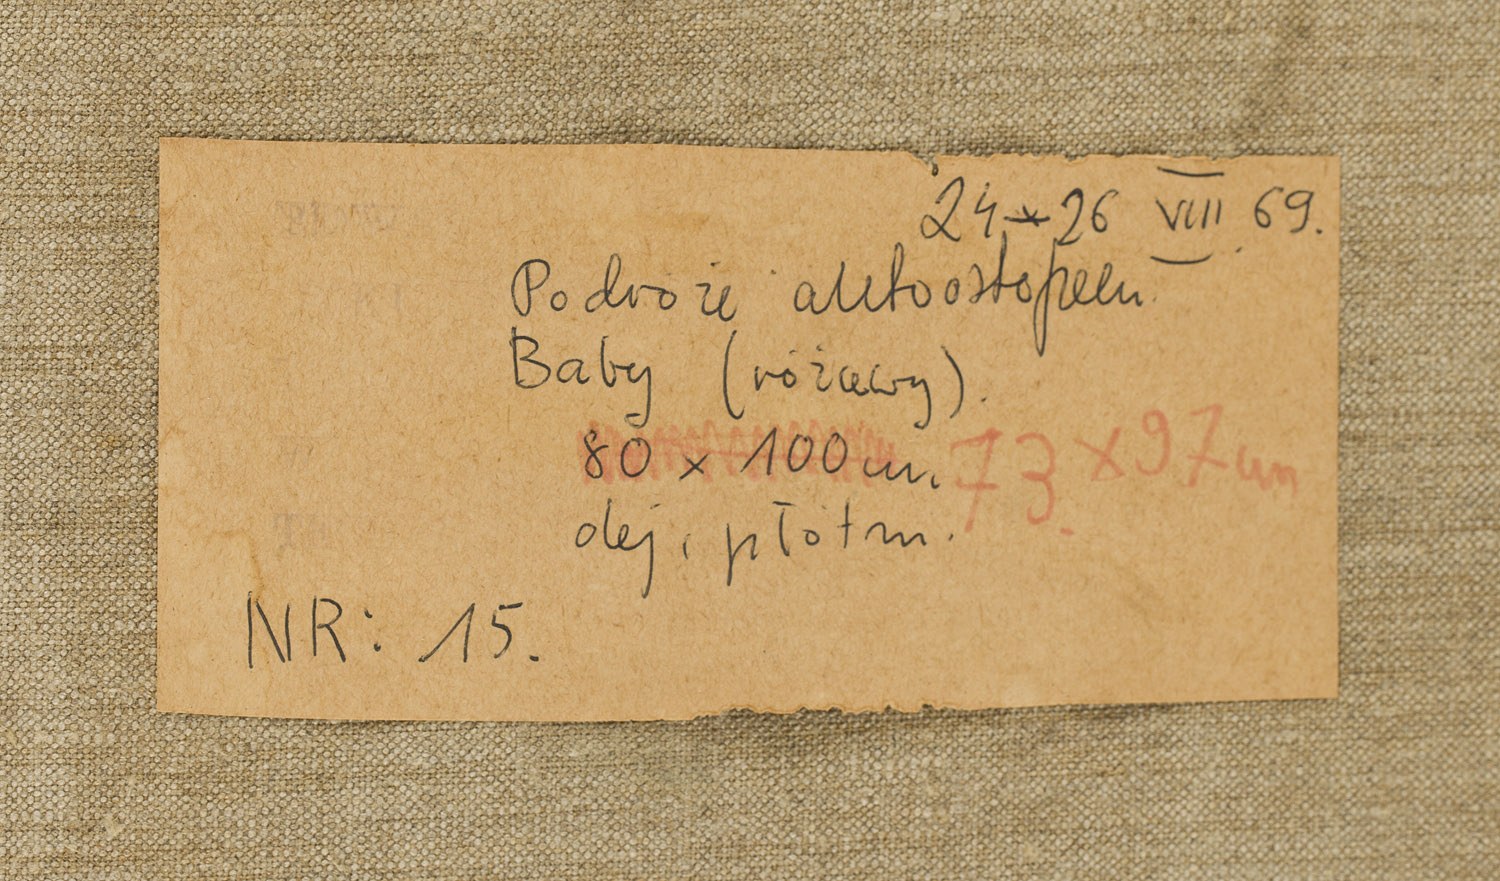 24-26 VIII 69.
Podróże autoostopem
Baby (różowy).
80 x 100 cm. 73 x 97 cm
olej, płótno.
NR: 15.